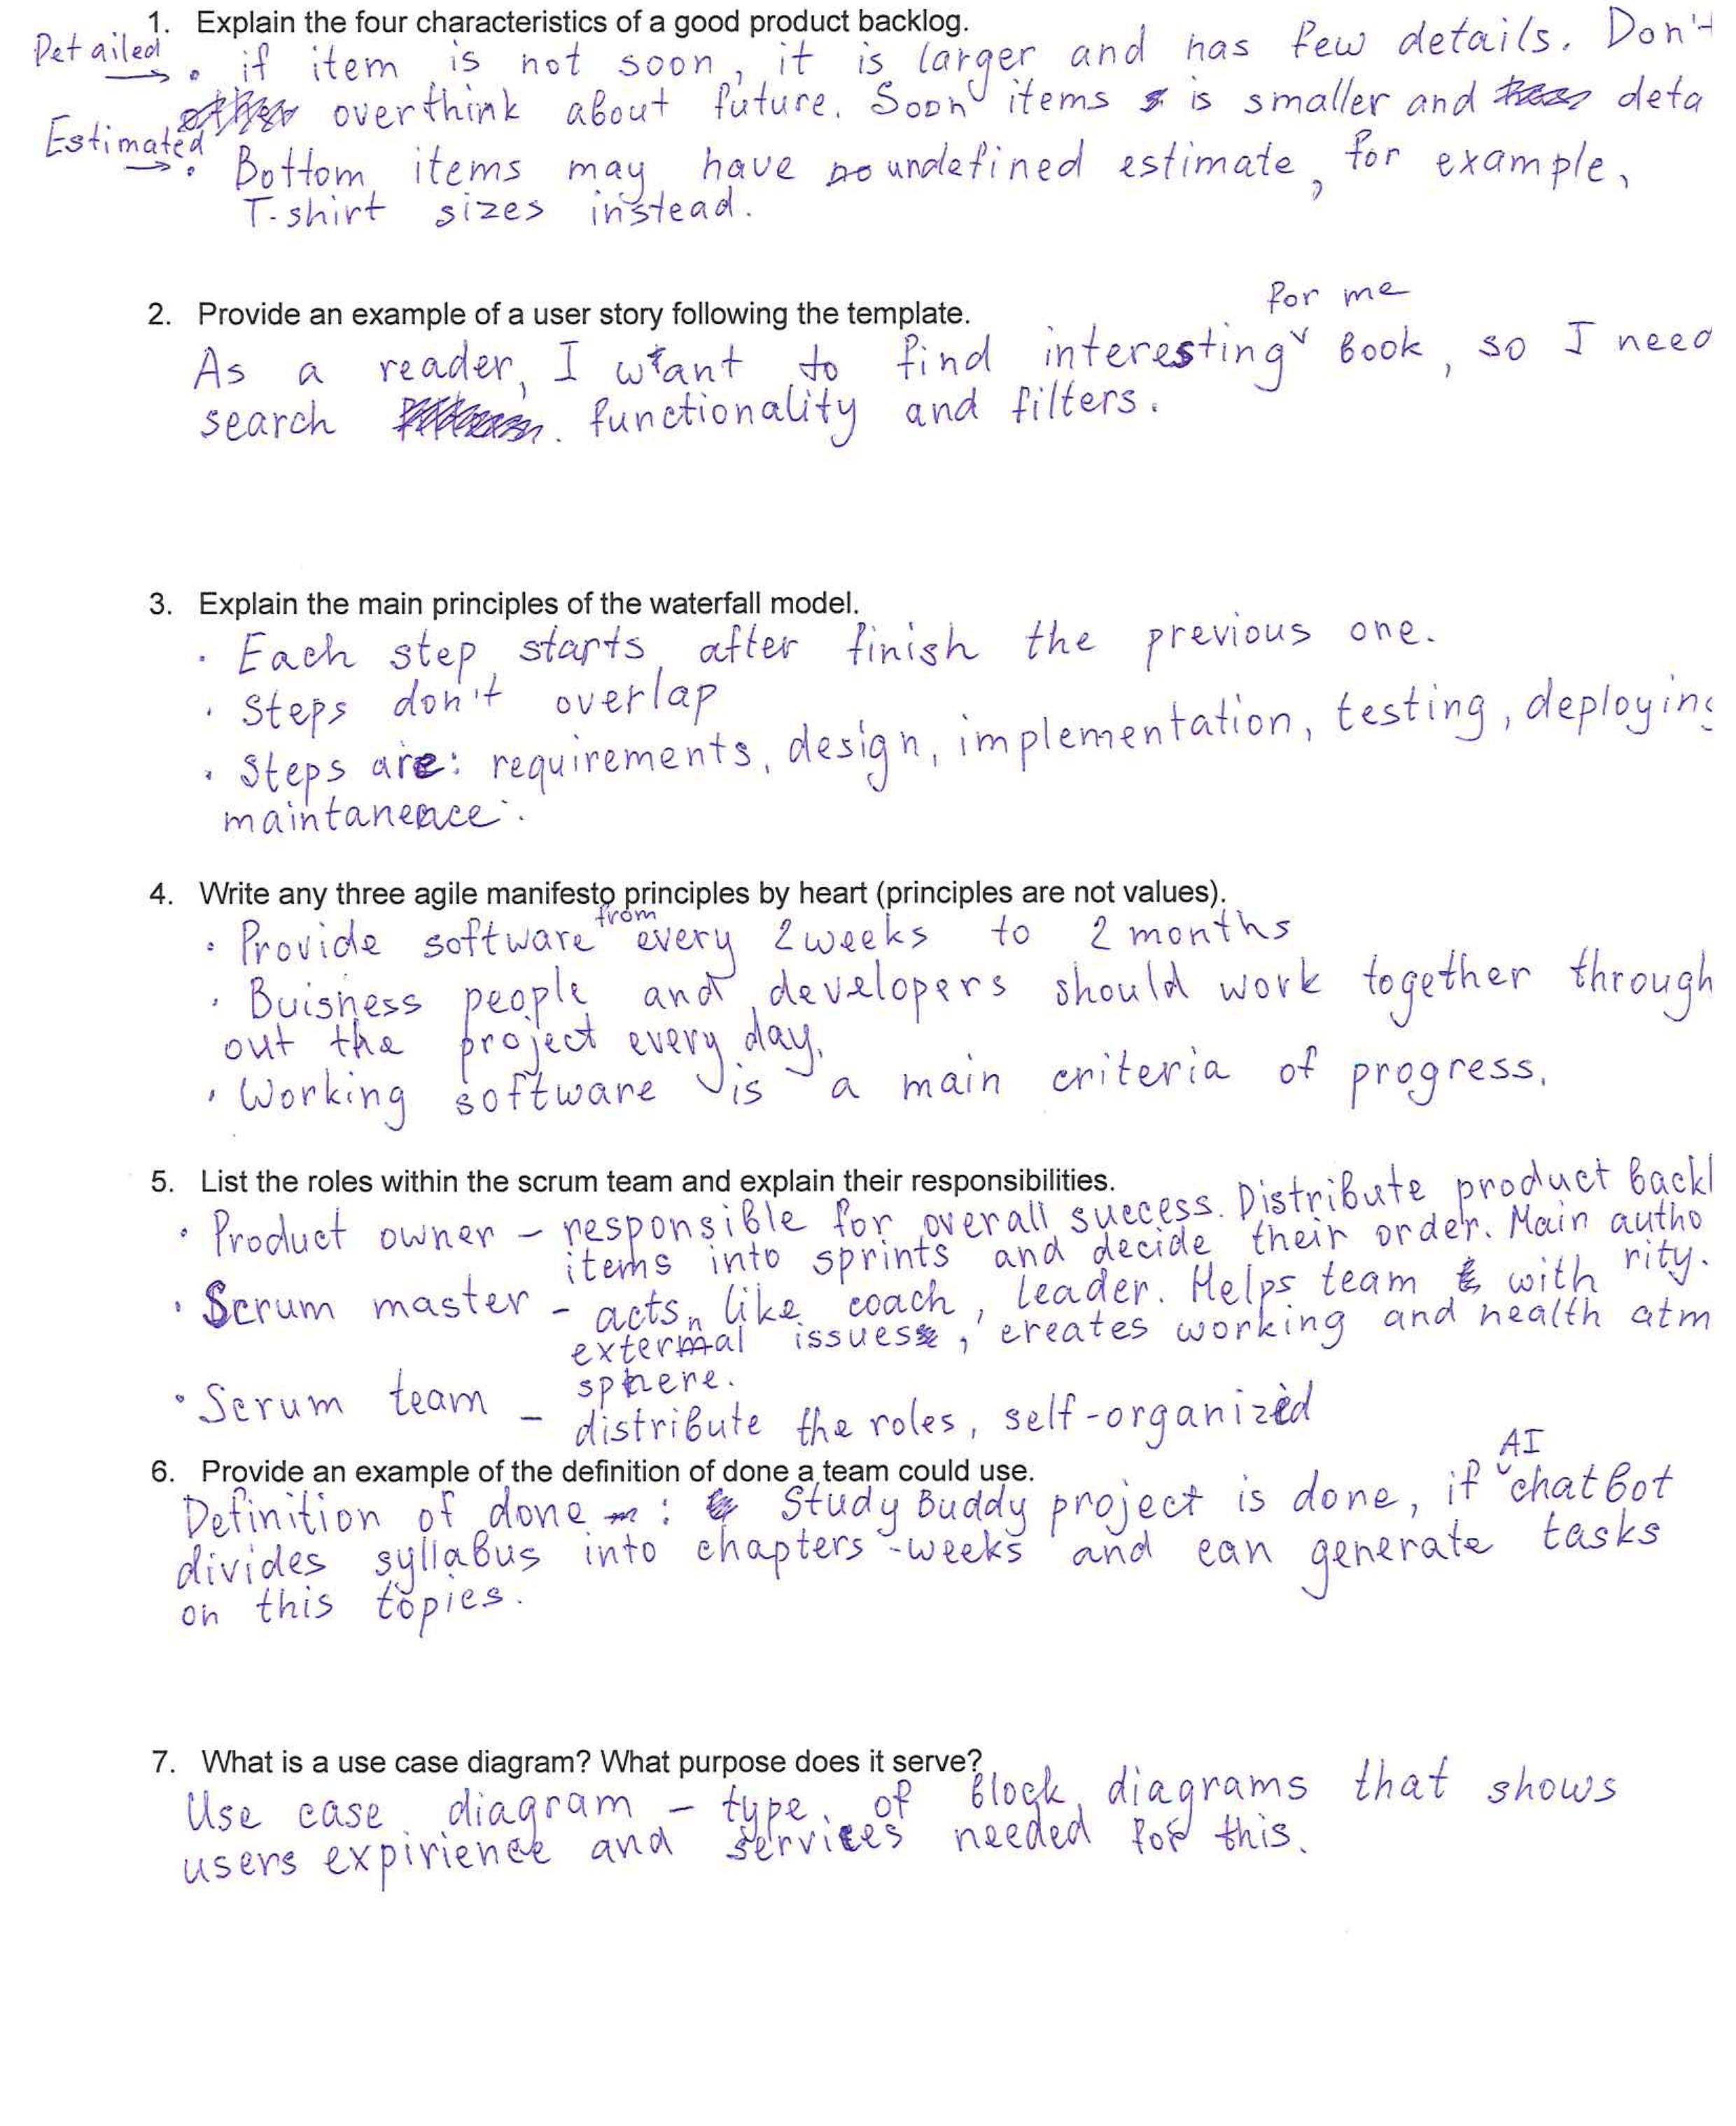 1. Explain the four characteristics of a good product backlog.
Detailed → • if item is not soon, it is larger and has few details. Don't
overthink about future. Soon items is smaller and deta
Estimated → • Bottom items may have undefined estimate, for example,
T-shirt sizes instead.
2. Provide an example of a user story following the template.
for me
As a reader, I want to find interesting ˅ book, so I need
search functionality and filters.
3. Explain the main principles of the waterfall model.
• Each step starts after finish the previous one.
• Steps don't overlap
• Steps are: requirements, design, implementation, testing, deploying
maintanence.
4. Write any three agile manifesto principles by heart (principles are not values).
from
• Provide software every 2 weeks to 2 months
• Buisness people and developers should work together through
out the project every day.
• Working software is a main criteria of progress.
5. List the roles within the scrum team and explain their responsibilities.
• Product owner – responsible for overall success. Distribute product backl
items into sprints and decide their order. Main autho
rity.
• Scrum master – acts like coach, leader. Helps team with
external issues, creates working and health atm
sphere.
• Scrum team – distribute the roles, self-organized
6. Provide an example of the definition of done a team could use.
AI
Definition of done : Study Buddy project is done, if ˅ chatbot
divides syllabus into chapters-weeks and can generate tasks
on this topics.
7. What is a use case diagram? What purpose does it serve?
Use case diagram – type of block diagrams that shows
users expirience and services needed for this.